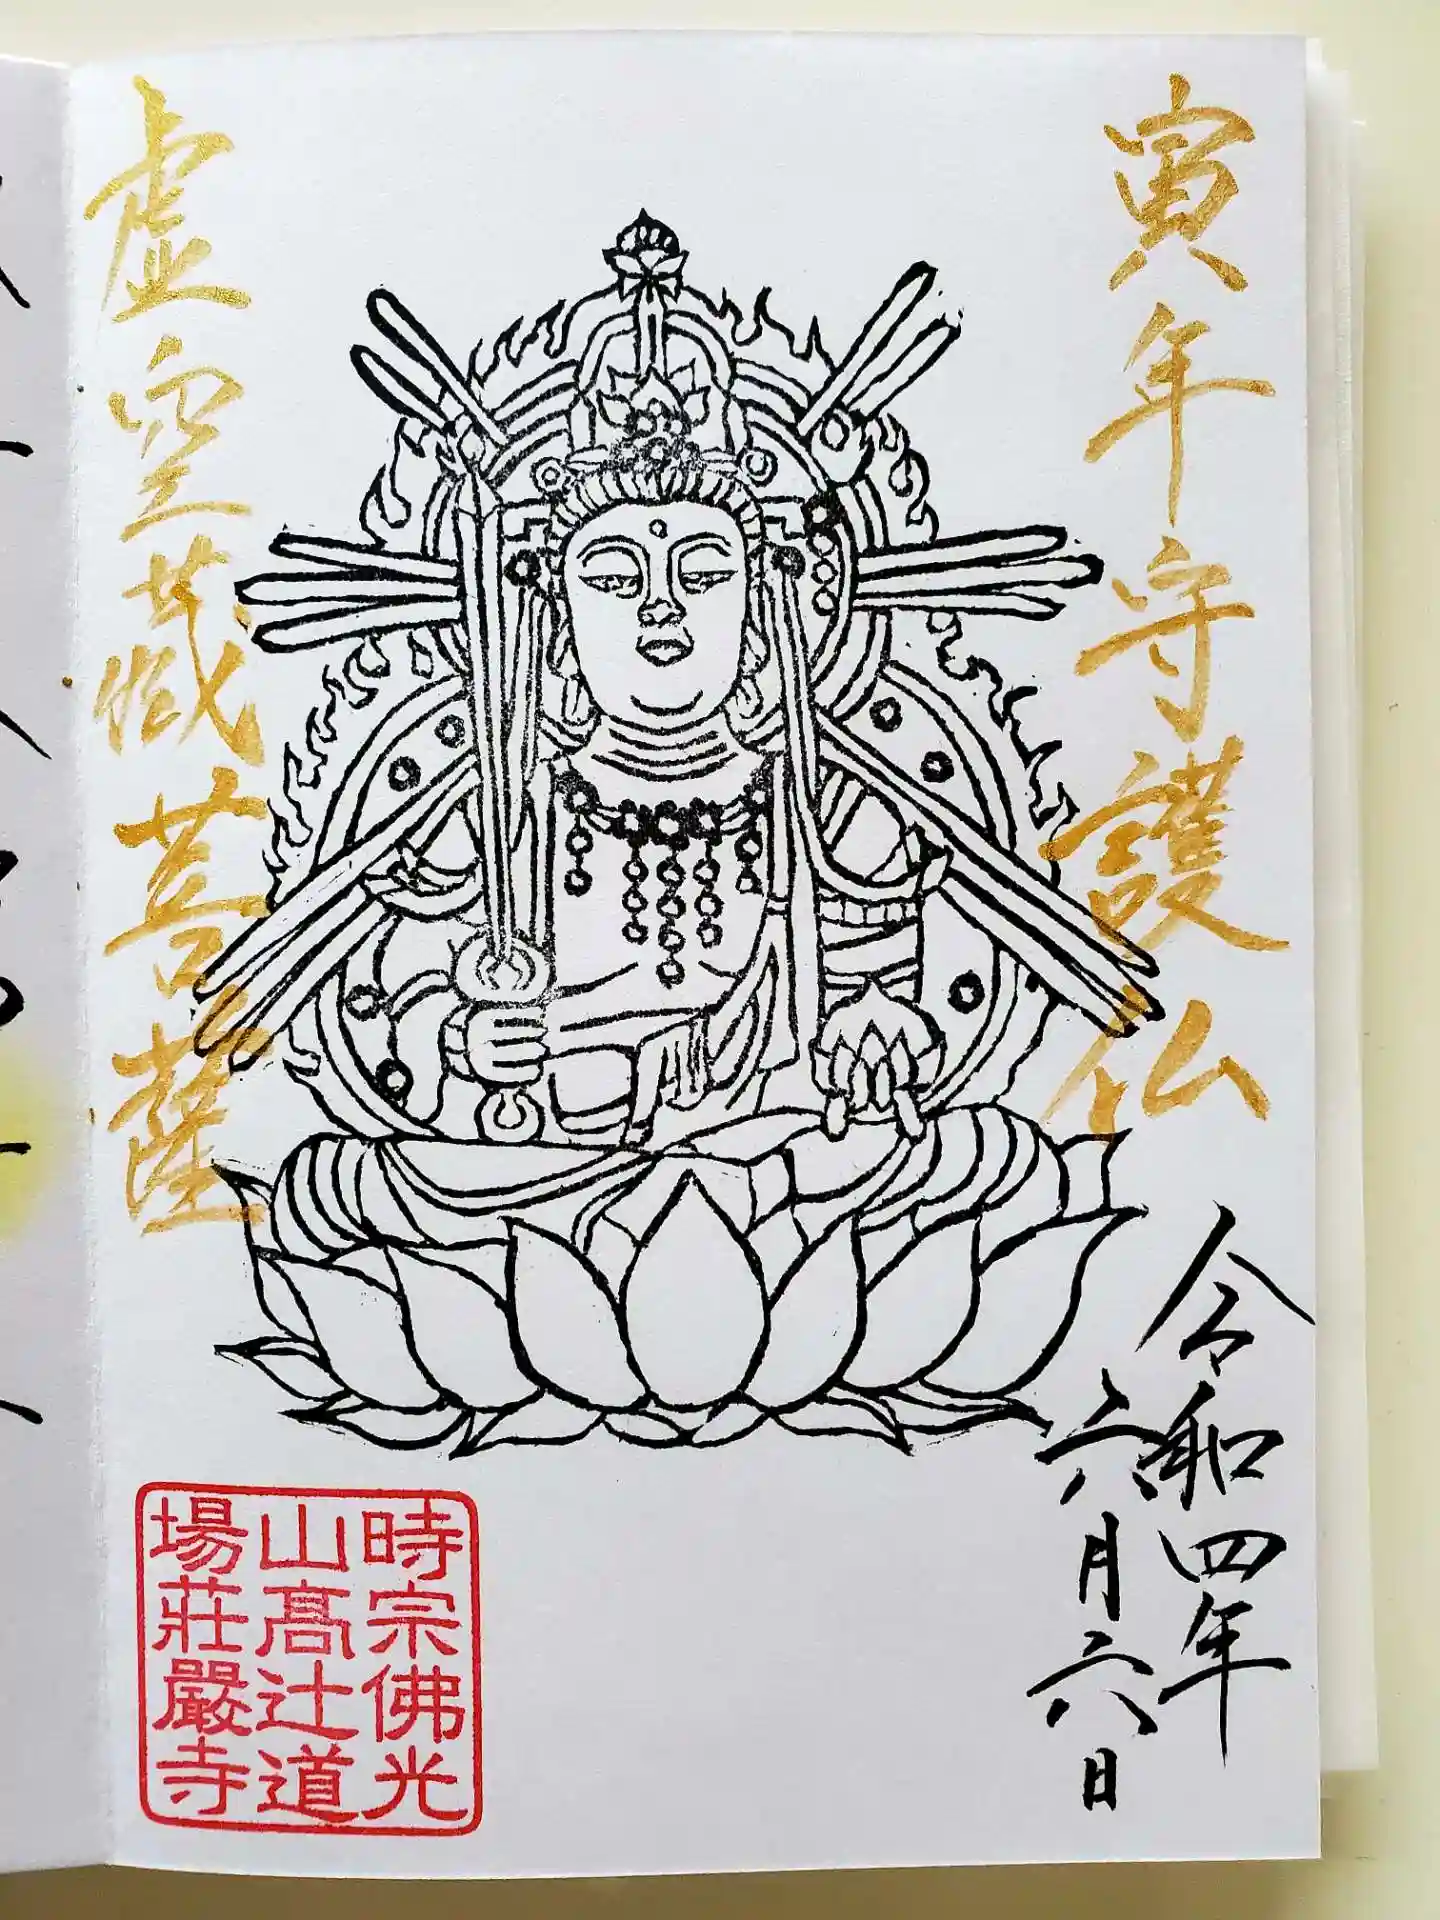 寅年守護仏
令和四年
六月六日
虚空蔵菩薩
時宗佛光
山髙辻道
場莊嚴寺